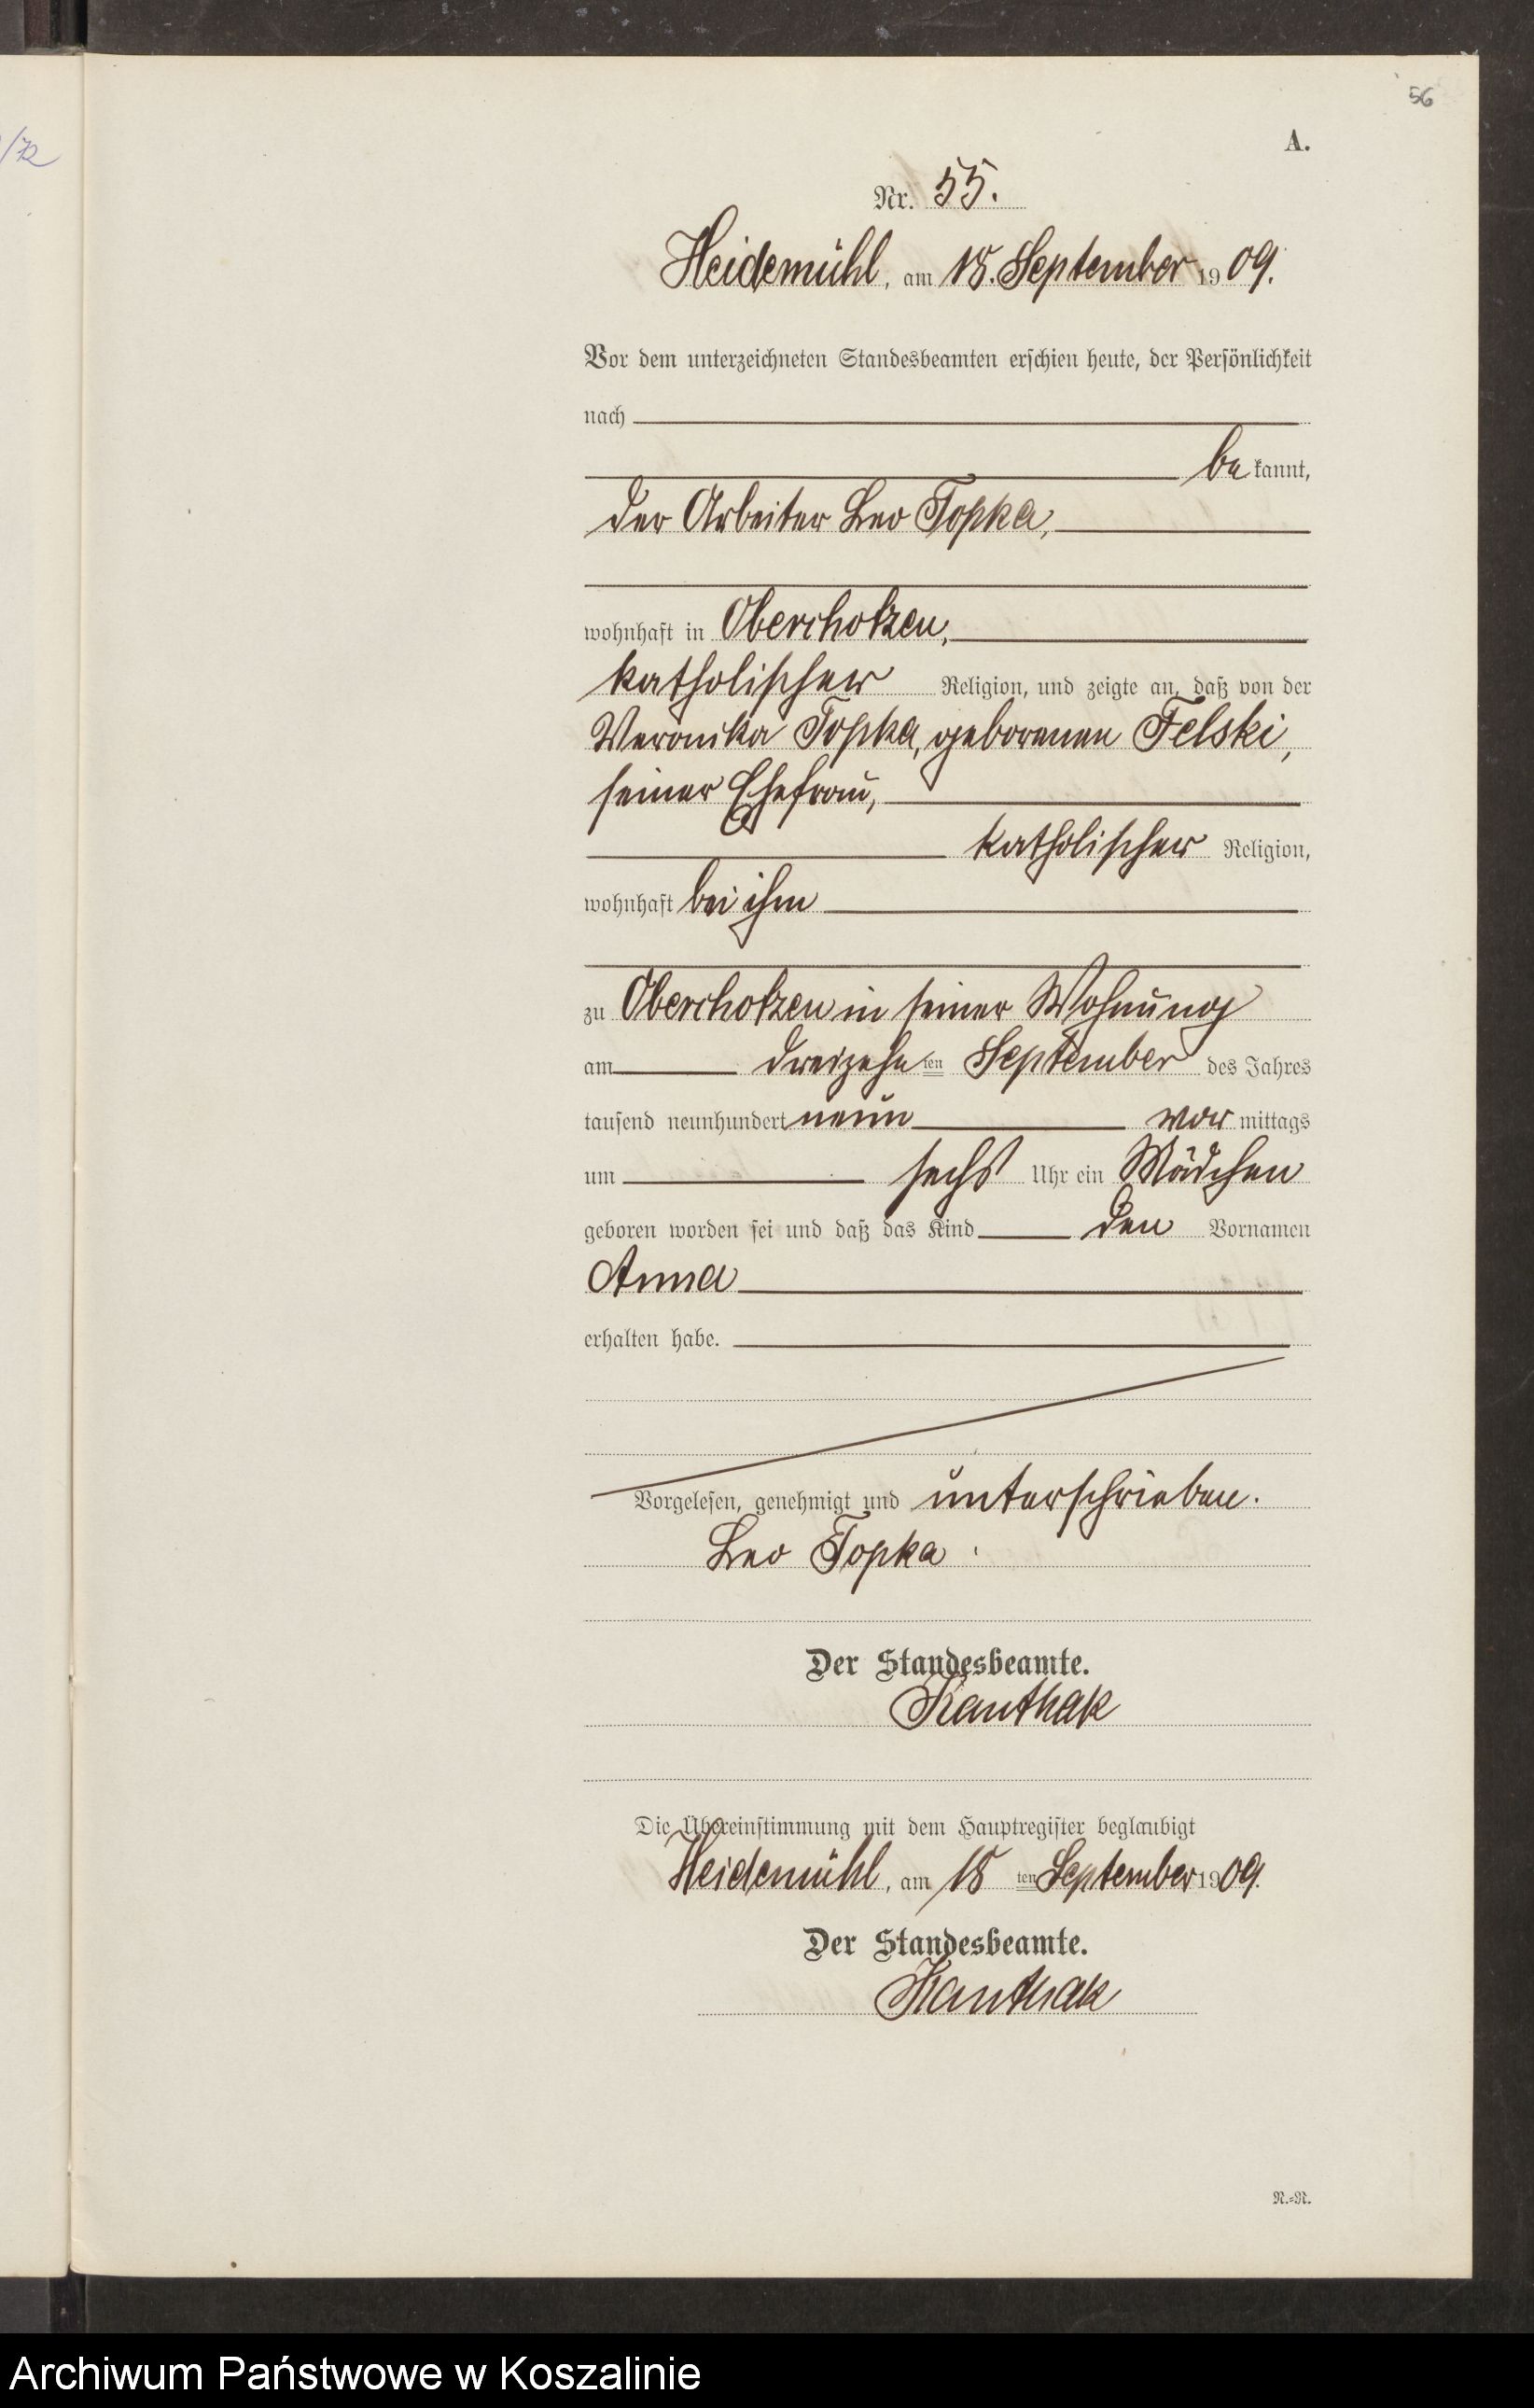 /72
56
A.
Nr. 55.
Heidemühl, am 18. September 1909.
Vor dem unterzeichneten Standesbeamten erschien heute, der Persönlichkeit
nach
be kannt,
der Arbeiter Leo Topka,
wohnhaft in Oberchotzen,
katholischer Religion, und zeigte an, daß von der
Veronika Topka, geborenen Felski,
seiner Ehefrau,
katholischer Religion,
wohnhaft bei ihm
zu Oberchotzen in seiner Wohnung
am dreizehn ten September des Jahres
tausend neunhundert neun vor mittags
um sechs Uhr ein Mädchen
geboren worden sei und daß das Kind den Vornamen
Anna
erhalten habe.
Vorgelesen, genehmigt und unterschrieben.
Leo Topka.
Der Standesbeamte.
Kanthak
Die Übereinstimmung mit dem Hauptregister beglaubigt
Heidemühl, am 18 ten September 1909.
Der Standesbeamte.
Kanthak
N.=N.
Archiwum Państwowe w Koszalinie